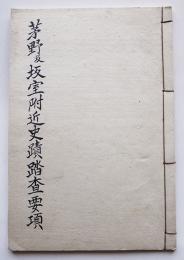 茅野及坂室附近史蹟踏査要項